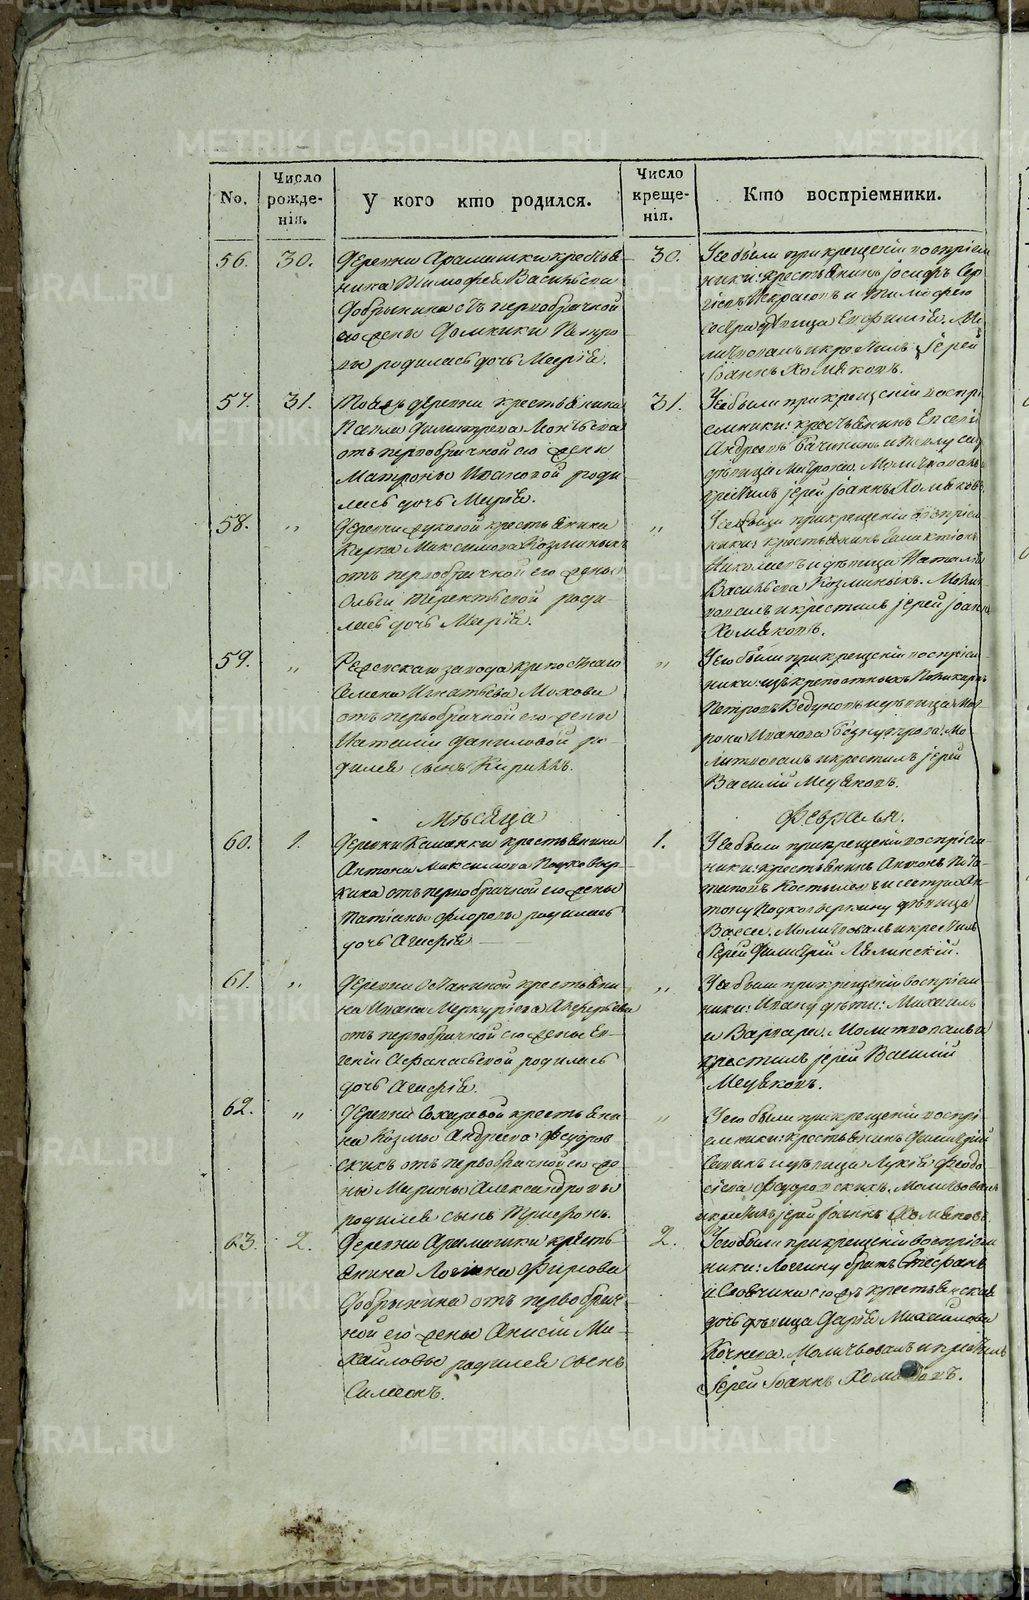 No.
Число рожденія.
У кого кто родился.
Число крещенія.
Кто воспріемники.
56.
30.
Деревни Арамашки крестья-
нина Тимофея Васильева
Добрынина отъ первобрачной
его жены Домники Петро-
вы родилась дочь Марія.
30.
Уее были при крещеніи воспріем
ники: крестьянинъ Іосифъ Сер
гіевъ Некрасовъ и Тимофею
сестра дѣвица Евфимія. Мо-
литвовалъ и крестилъ Іерей
Іоаннъ Хомяковъ.
57.
31.
Тоаже деревни крестьянина
Павла Димитріева
отъ первобрачной его жены
Матроны Ивановой роди
лась дочь Марія.
31.
Уее были при крещеніи воспрі
емники: крестьянинъ Евсевій
Андреевъ Бачининъ и Павлу сес
дѣвица Матрона. Молитвовалъ
крестилъ іерей Іоаннъ Хомяковъ.
58.
"
Деревни крестьянина
Карпа Максимова Козминыхъ
отъ первобрачной его жены
Ольги Терентьевой роди-
лась дочь Марія.
"
Уее были при крещеніи воспріем
ники: крестьянинъ
Николаевъ и дѣвица Наталья
Васильева Козминыхъ. Молит
вовалъ и крестилъ іерей Іоаннъ
Хомяковъ.
59.
"
Режевскаго завода крепостнаго
Семена Игнатьева Мохова
отъ первобрачной его жены
Наталіи Даниловой ро-
дился сынъ Кириллъ.
"
Уего были при крещеніи воспріем
ники: изъ крепостныхъ Поликарпъ
Петровъ Ведуновъ и дѣвица Мат
рона Иванова. Мо-
литвовалъ и крестилъ іерей
Василій Медяковъ.
Мѣсяца
Февраля.
60.
1.
Деревни Каменки крестьянина
Антона Максимова Подковыр-
кина отъ первобрачной его жены
Татіаны Флоровы родилась
дочь Агафія
1.
Уее были при крещеніи воспріем
ники: крестьянинъ Антонъ
Костылевъ и сестра Ан-
тону Подковыркину дѣвица
Васса. Молитвовалъ и крестилъ
Іерей Димитрій Ляпинскій.
61.
"
Деревни Останиной крестьяни-
на Ивана Меркурьева
отъ первобрачной его жены Ев-
геніи Афанасьевой родилась
дочь Агафія.
"
Уее были при крещеніи воспріем
ники: Ивану дѣти: Михаилъ
и Варвара. Молитвовалъ и
крестилъ іерей Василій
Медяковъ.
62.
"
Деревни Сохаревой крестьяни-
на Козмы Андреева Федоров
скихъ отъ первобрачной его же
ны Марины Александровы
родился сынъ Трифонъ.
"
Уего были при крещеніи воспрі-
емники: крестьянинъ Димитрій
и дѣвица Лукія Феодо
сіева Федоровскихъ. Молитвовалъ
и крестилъ іерей Іоаннъ Хомяковъ.
63.
2.
Деревни Арамашки кресть
янина Логина Фирсова
Добрынина отъ первобрач-
ной его жены Анисіи Ми-
хайловы родился сынъ
Симеонъ.
2.
Уего были при крещеніи воспріем
ники: Логину братъ Стефанъ
крестьянская
дочь дѣвица Дарія Михаилова
Кочнева. Молитвовалъ и крестилъ
Іерей Іоаннъ Хомяковъ.
METRIKI.GASO-URAL.RU